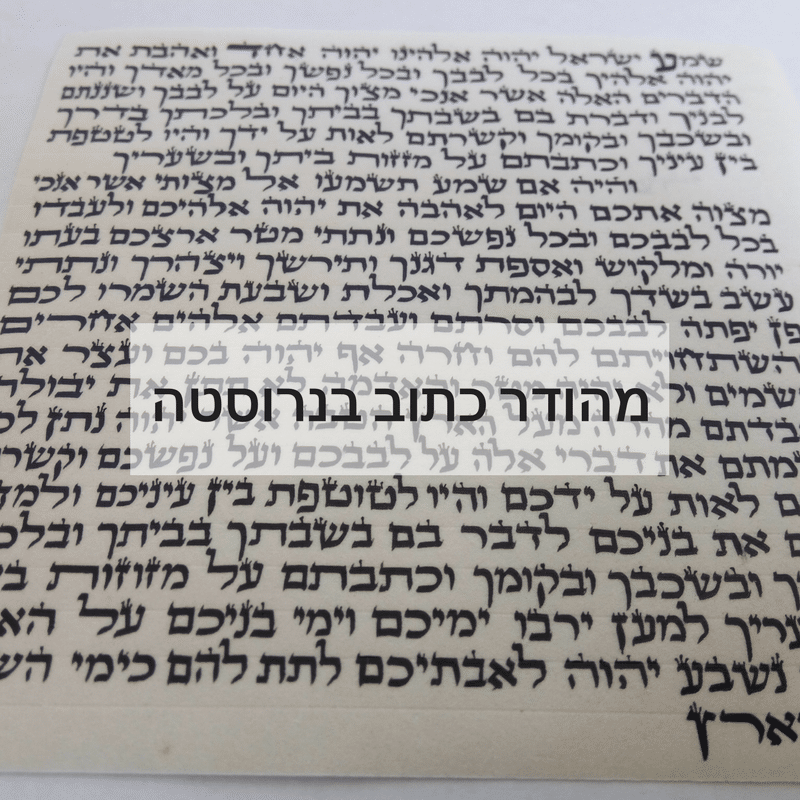 שמע ישראל יהוה אלהינו יהוה אחד ואהבת את
יהוה אלהיך בכל לבבך ובכל נפשך ובכל מאדך והיו
הדברים האלה אשר אנכי מצוך היום על לבבך ושננתם
לבניך ודברת בם בשבתך בביתך ובלכתך בדרך
ובשכבך ובקומך וקשרתם לאות על ידך והיו לטטפת
בין עיניך וכתבתם על מזזות ביתך ובשעריך
והיה אם שמע תשמעו אל מצותי אשר אנכי
מצוה אתכם היום לאהבה את יהוה אלהיכם ולעבדו
בכל לבבכם ובכל נפשכם ונתתי מטר ארצכם בעתו
יורה ומלקוש ואספת דגנך ותירשך ויצהרך ונתתי
עשב בשדך לבהמתך ואכלת ושבעת השמרו לכם
פן יפתה לבבכם וסרתם ועבדתם אלהים אחרים
השתחויתם להם וחרה אף יהוה בכם ועצר את
מהודר כתוב בנרוסטה
מהרה מעל הארץ נתן
את דברי אלה על לבבכם ועל נפשכם
לאות על ידכם והיו לטוטפת בין עיניכם
את בניכם לדבר בם בשבתך בביתך
ובשכבך ובקומך וכתבתם על מזוזות
למען ירבו ימיכם וימי בניכם על
נשבע יהוה לאבתיכם לתת להם כימי